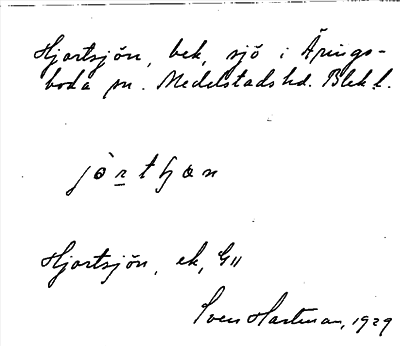 Hjortsjön, bek, sjö i Ärings-
boda sn. Medelstads hd. Blek. l.
Hjortsjön, ek, G11
Sven Hartman, 1929